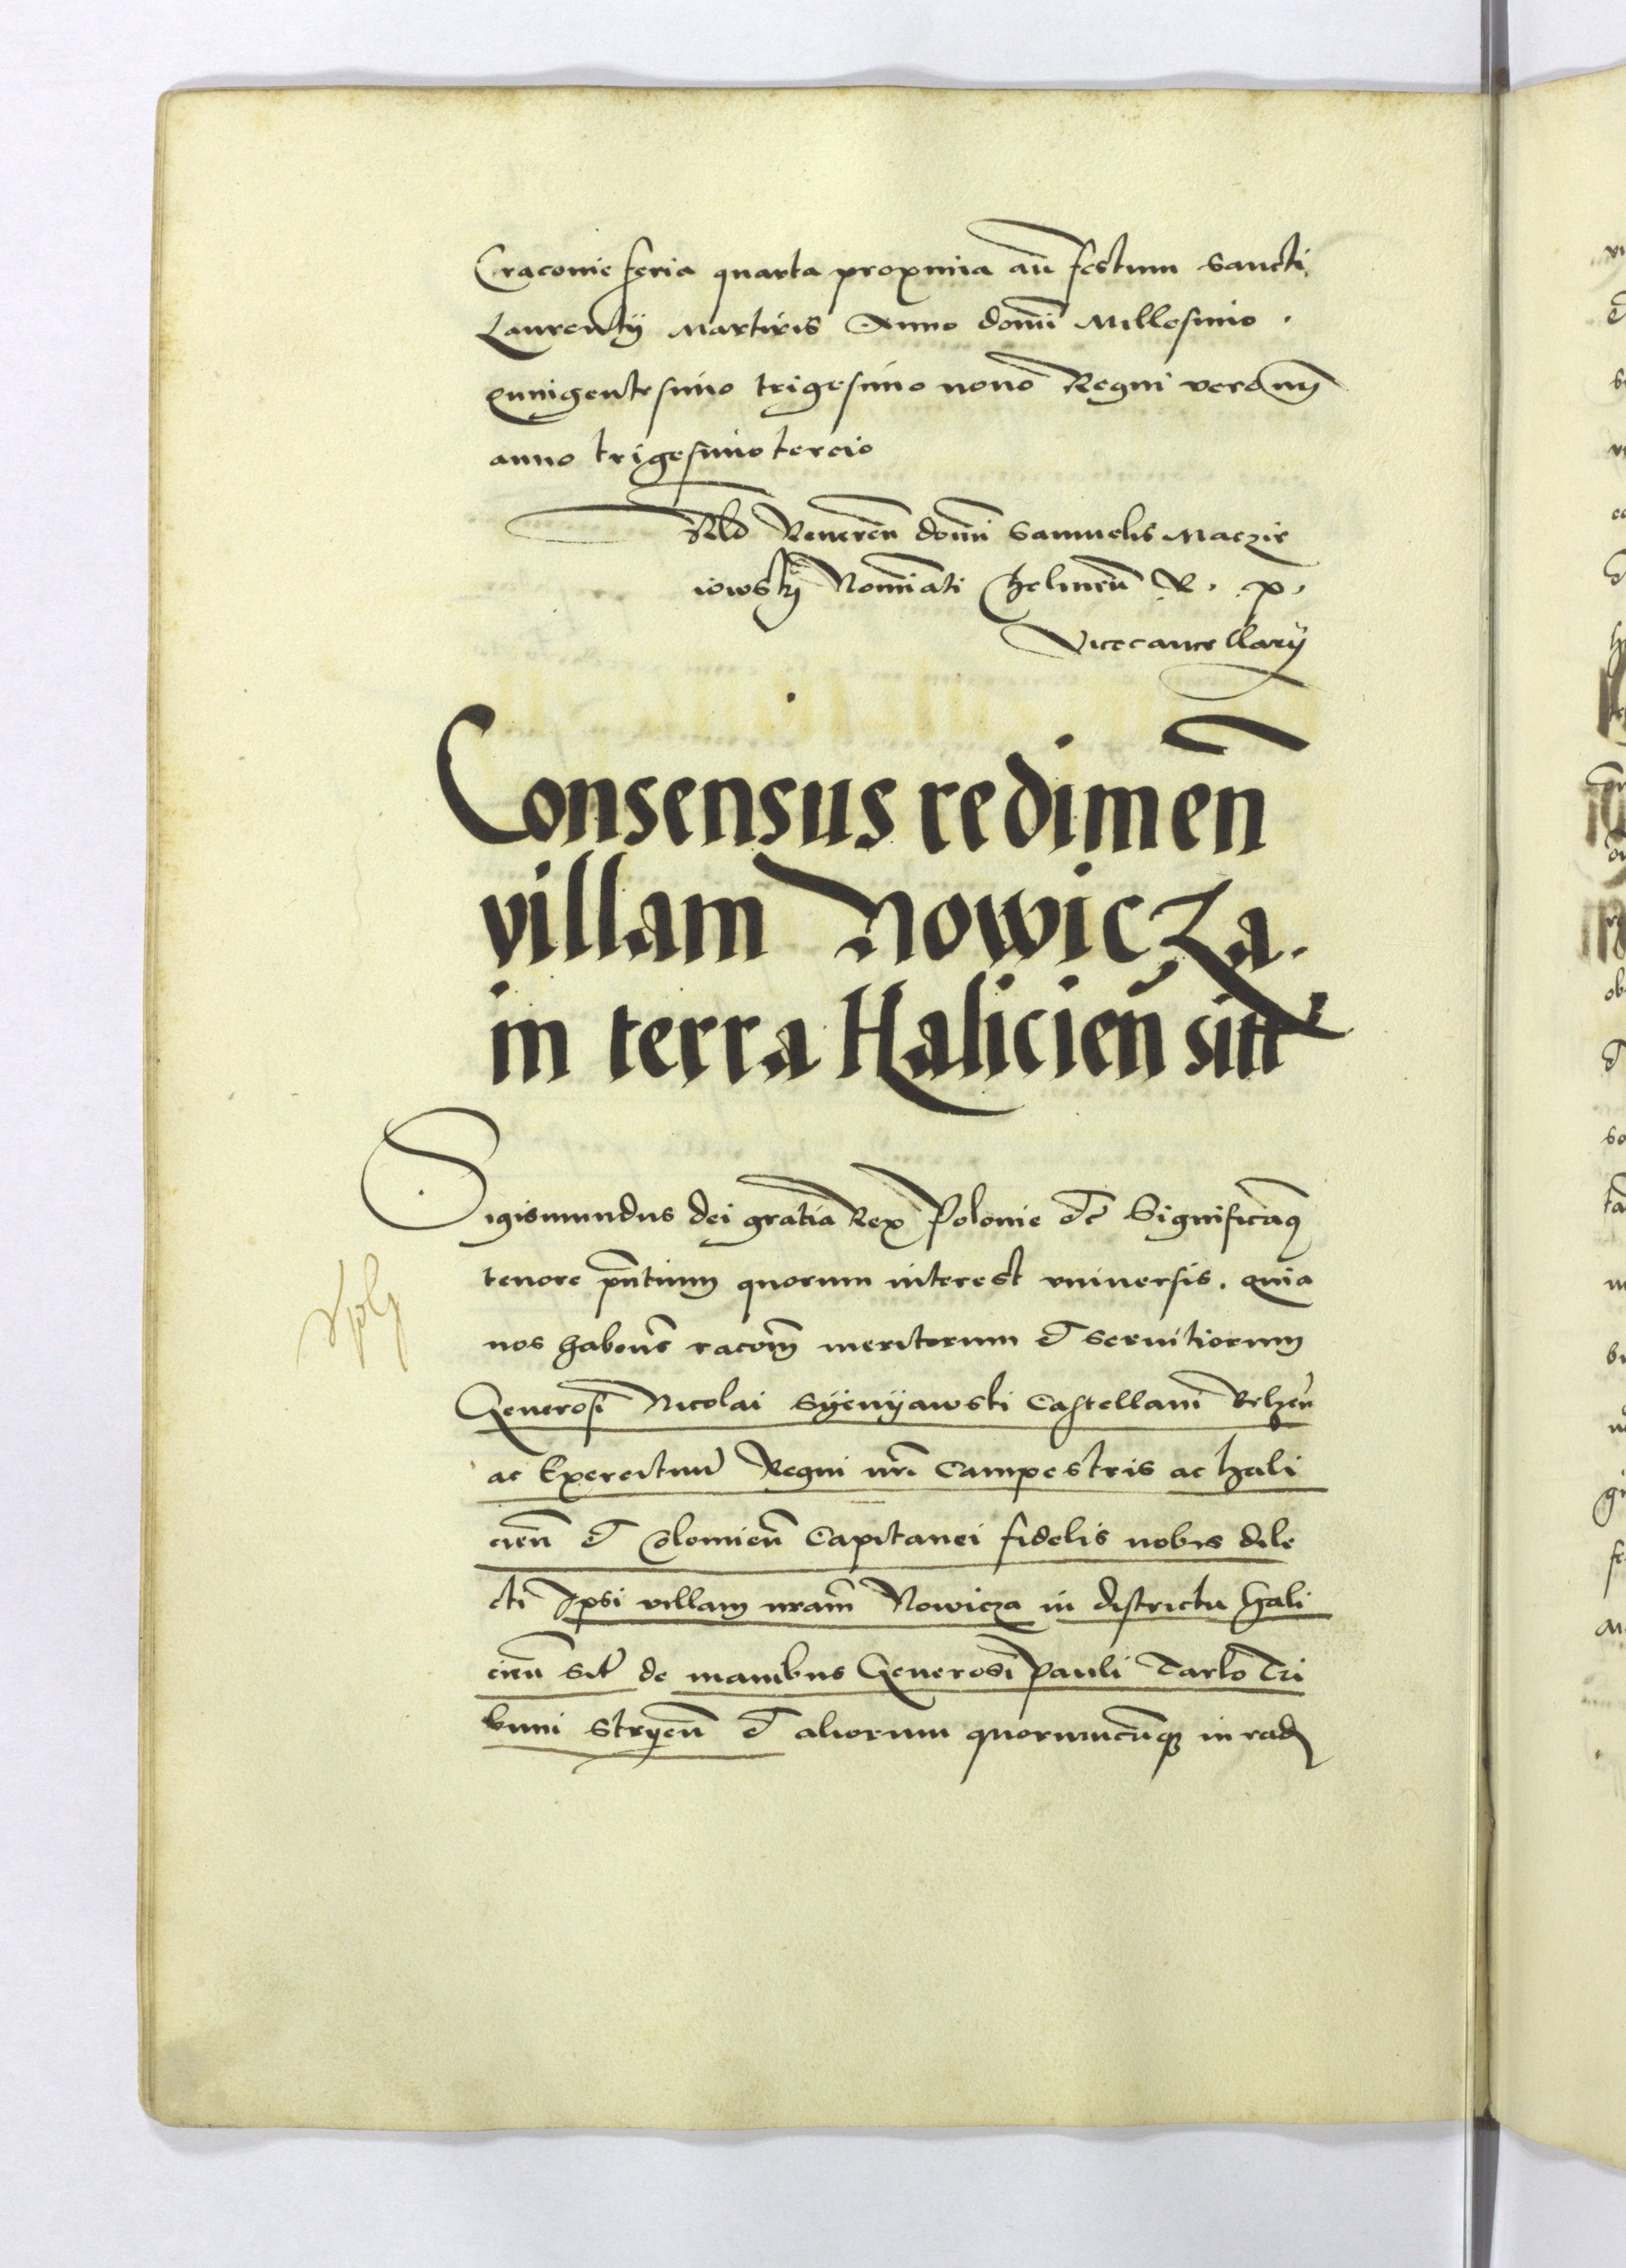 Cracovie feria quarta proxima an̄ festum Sancti
Laurentij Martiris Anno domī Millesimo.
quingentesimo trigesimo nono Regni vero nrī
anno trigesimotercio
Rel̄o Reueren̄ domī Samuelis Maczie
iowskij Nomīati Chelmen̄ R. p.
Vicecancellarij
Consensus redimen̄
villam Nowicza.
in terra Halicien̄ sitt
Sigismundus dei gratia Rex Polonie etc̄ Significam̄q
tenore pn̄tium quorum interest vniuersis. quia
nos haben̄t racōm meritorum et seruitiorum
Generosi Nicolai Syenyawski Castellani Belzen̄
ac Exercituū Regni nrī Campestris ac hali
cien̄ et Colomien̄ Capitanei fidelis nobis dile
cti Ipsi villam nram̄ Nowicza in districtu hali
cien̄ sit̄ de manibus Generosi Pauli Tarlo Tri
buni Stryen̄ et aliorum quorumcūq in rad